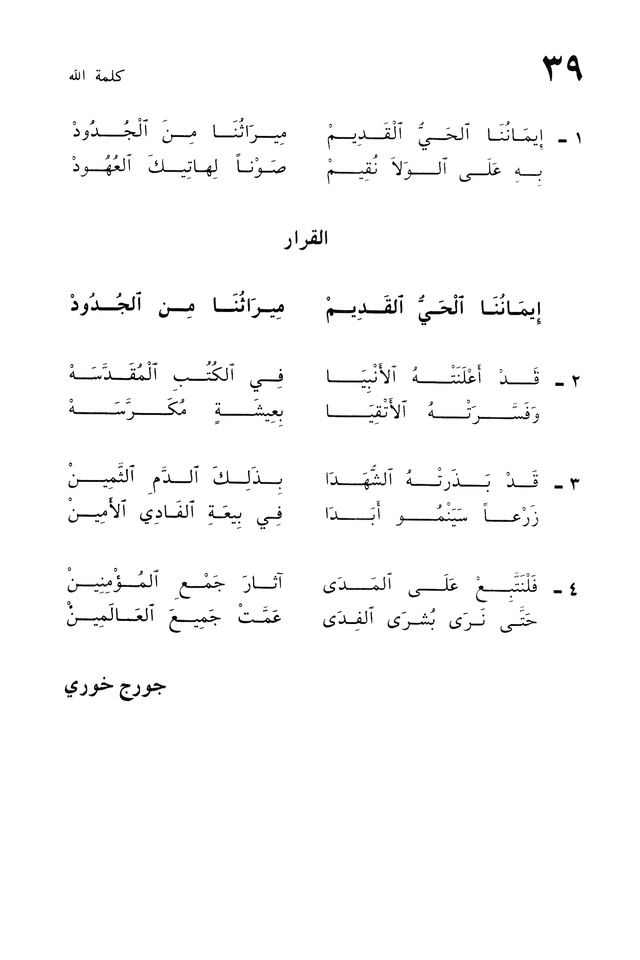 ٣٩
كلمة الله
١ - إِيمَانُنَا ٱلحَيُّ ٱلْقَدِيمْ مِيرَاثُنَا مِنَ ٱلْجُدُودْ
بِهِ عَلَى ٱلوَلاَ نُقِيمْ صَوْناً لِهاتِيكَ ٱلعُهُودْ
القرار
إِيمَانُنَا ٱلْحَيُّ ٱلقَدِيمْ مِيرَاثُنَا مِن ٱلجُدُودْ
٢ - قَدْ أَعْلَنَتْهُ ٱلأَنْبِيَا فِي ٱلكُتُبِ ٱلْمُقَدَّسَهْ
وَفَسَّرَتْهُ ٱلأَتْقِيَا بِعِيشَةٍ مُكَرَّسَهْ
٣ - قَدْ بَذَرَتْهُ ٱلشُّهَدَا بِذَلِكَ ٱلدَّمِ ٱلثَّمِينْ
زَرْعاً سَيَنْمُو أَبَدَا فِي بِيعَةِ ٱلفَادِي ٱلأَمِينْ
٤ - فَلْنَتَّبِعْ عَلَى ٱلمَدَى آثارَ جَمْعِ ٱلمُؤْمِنِينْ
حَتَّى نَرَى بُشرَى ٱلفِدَى عَمَّتْ جَمِيعَ ٱلعَالَمِينْ
جورج خوري